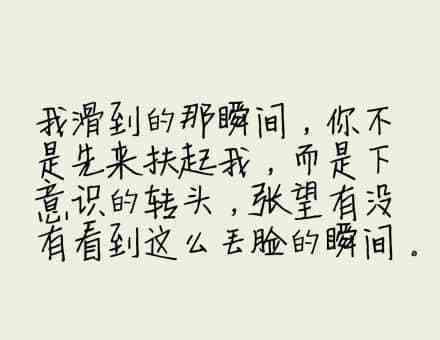 我滑到的那瞬间，你不
是先来扶起我，而是下
意识的转头，张望有没
有看到这么丢脸的瞬间。